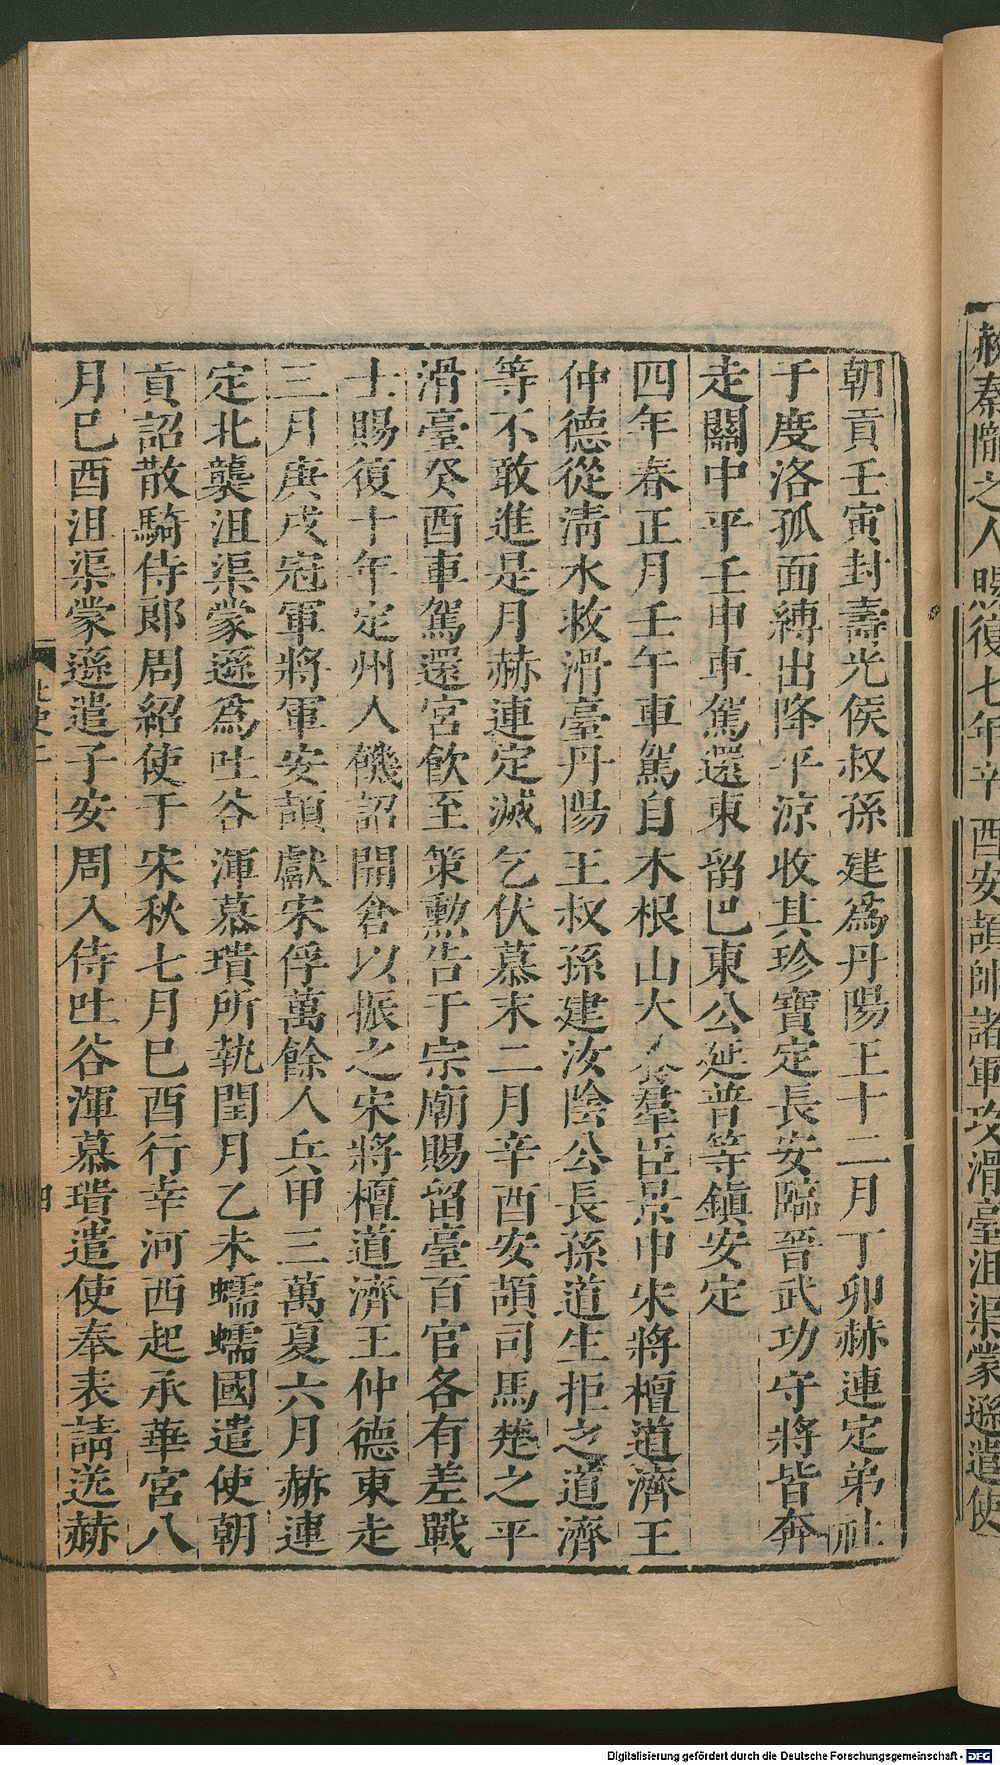 赦秦隴之人賜復七年辛酉安頡帥諸軍攻滑臺沮渠蒙遜遣使
朝貢壬寅封壽光侯叔孫建爲丹陽王十二月丁卯赫連定弟社
于度洛孤面縛出降平涼收其珍寶定長安臨晉武功守將皆奔
走關中平壬申車駕還東留巴東公延普等鎮安定
四年春正月壬午車駕自木根山大饗羣臣景申宋將檀道濟王
仲德從淸水救滑臺丹陽王叔孫建汝陰公長孫道生拒之道濟
等不敢進是月赫連定滅乞伏慕末二月辛酉安頡司馬楚之平
滑臺癸酉車駕還宮飮至策勳告于宗廟賜留臺百官各有差戰
士賜復十年定州人饑詔開倉以振之宋將檀道濟王仲德東走
三月庚戌冠軍將軍安頡獻宋俘萬餘人兵甲三萬夏六月赫連
定北襲沮渠蒙遜爲吐谷渾慕璝所執閏月乙未蠕蠕國遣使朝
貢詔散騎侍郞周紹使于宋秋七月巳酉行幸河西起承華宮八
月巳酉沮渠蒙遜遣子安周入侍吐谷渾慕璝遣使奉表請送赫
四
Digitalisierung gefördert durch die Deutsche Forschungsgemeinschaft - DFG